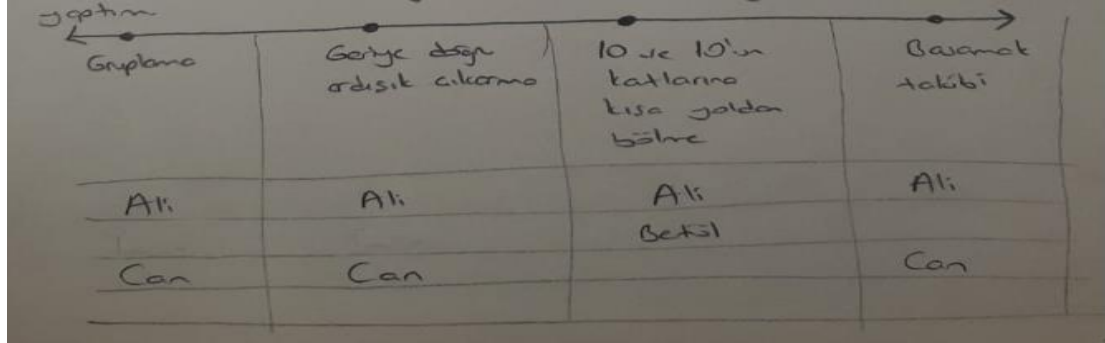 yaptım
Gruplama
Geriye doğru
ardışık çıkarma
10 ve 10'un
katlarına
kısa yoldan
bölme
Basamak
takibi
Ali Ali Ali Ali
Betül
Can Can Can